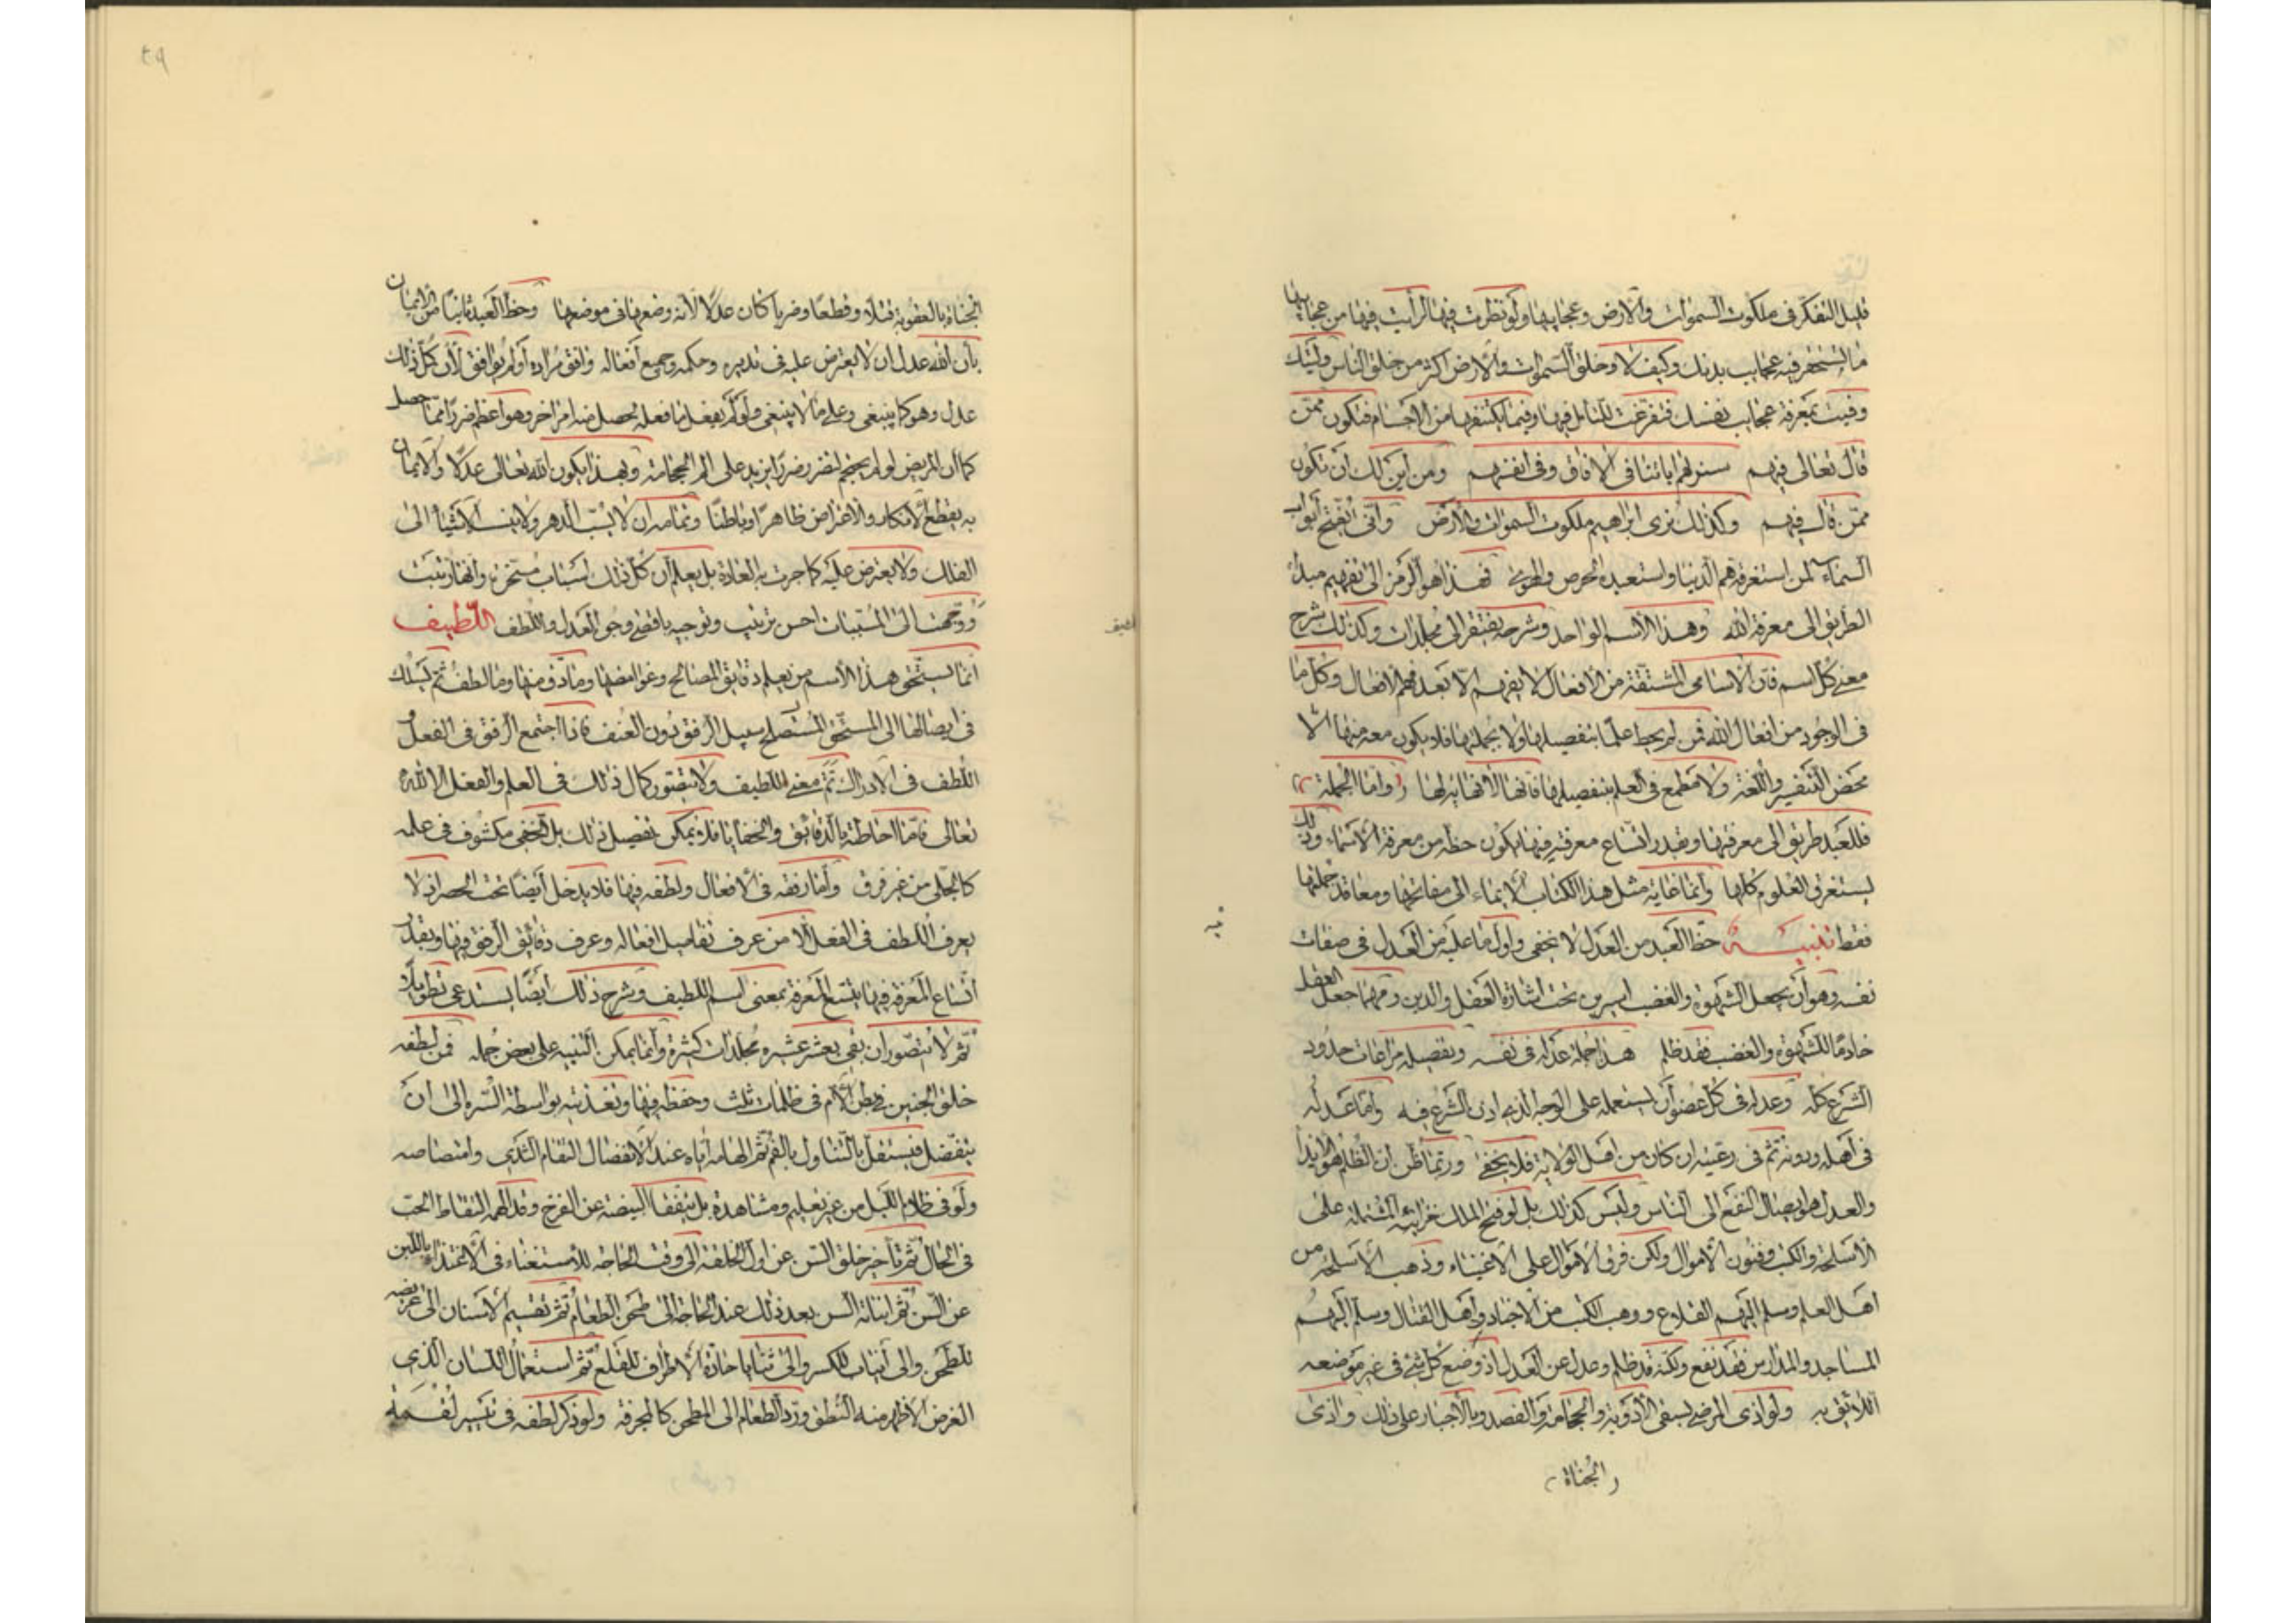 قليل التفكر في ملكوت السموات والارض وعجايبها ولو نظرت فيها لرأيت فيها من عجايبها
ما يستحقر فيه عجايب بدنك وكيف لا وخلق السموات والارض اكبر من خلق الناس وليتك
وفيت بمعرفة عجايب نفسك فتفرغت للتامل فيها وفيما يكتنفها من الاجسام فتكون ممن
قال تعالى فيهم سنريهم اياتنا في الافاق وفي انفسهم ومن اين لك ان تكون
ممن قال فيهم وكذلك نرى ابراهيم ملكوت السموات والارض وانى تفتح ابواب
السماء لمن استغرقه هم الدنيا واستعبده الحرص والهوى فهذا هو الرمز الى تفهيم مبدأ
الطريق الى معرفة الله وهذا الاسم الواحد وشرحه يفتقر الى مجلدات وكذلك شرح
معنى كل اسم فان الاسامى المشتقة من الافعال لا يفهم الا بعد فهم الافعال وكل ما
في الوجود من افعال الله فمن لم يحط علما بتفصيلها ولا بجملتها فلا يكون معه منها الا
محض التفسير واللغة ولا مطمع في العلم بتفصيلها فانها لا نهاية لها واما الجملة
فللعبد طريق الى معرفتها وبقدر اتساع معرفته فيها يكون حظه من معرفة الاسماء وذلك
يستغرق العلوم كلها وانما غاية مثل هذا الكتاب الايماء الى مفاتحها ومعاقد جملتها
فقط تنبيه حظ العبد من العدل لا يخفى واول ما عليه من العدل في صفات
نفسه وهو ان يجعل الشهوة والغضب اسيرين تحت اشارة العقل والدين ومهما جعل العقل
خادما للشهوة والغضب فقد ظلم هذا جملة عدله في نفسه وتفصيله مراعات حدود
الشرع كله وعدله في كل عضو ان يستعمله على الوجه الذي اذن الشرع فيه واما عدله
في اهله وذويه ثم في رعيته ان كان من اهل الولاية فلا يخفى وربما ظن ان الظلم هو الايذا
والعدل هو ايصال النفع الى الناس وليس كذلك بل لو فتح الملك خزانته المشتملة على
الاسلحة والكتب وفنون الاموال ولكن فرق الاموال على الاغنياء وذهب الاسلحة من
اهل العلم وسلم اليهم القلاع ووهب الكتب من الاجناد واهل القتال وسلم اليهم
المساجد والمدارس فقد نفع ولكنه قد ظلم وعدل عن العدل اذ وضع كل شئ في غير موضعه
اللائق به ولو اذى المرضى بسقى الادوية والحجامة والفصد وبالاجبار على ذلك واذى
الجناة
الجناة بالعقوبة قتلا وقطعا وضربا كان عدلا لانه وضعها في موضعها وحظ العبد ثانيا من الايمان
بان الله عدل ان لا يعترض عليه في تدبيره وحكمه وجميع افعاله وافق مراده او لم يوافق لان كل ذلك
عدل وهو كما ينبغي وعلى ما لا ينبغي ولو لم يفعل ما فعله لحصل منه امر اخر وهو اعظم ضررا مما حصل
كما ان المريض لو لم يحتجم لتضرر ضررا يزيد على الم الحجامة وبهذا يكون الله تعالى عدلا والايمان
به يقطع الانكار والاعتراض ظاهرا وباطنا وتمامه ان لا يسب الدهر ولا ينسب الاشياء الى
الفلك ولا يعترض عليه كما جرت به العادة بل يعلم ان كل ذلك اسباب مسخرة وانها رتبت
ووجهت الى المسببات احسن ترتيب وتوجيه باقصى وجوه العدل واللطف اللطيف
انما يستحق هذا الاسم من يعلم دقايق المصالح وغوامضها وما دق منها وما لطف ثم يسلك
في ايصالها الى المستحق المستصلح سبيل الرفق دون العنف فاذا اجتمع الرفق في الفعل
واللطف في الادراك تم معنى اللطيف ولا يتصور كمال ذلك في العلم والفعل الا لله
تعالى فاما احاطته بالدقائق والخفايا فلا يمكن تفصيل ذلك بل الخفى مكشوف في علمه
كالجلى من غير فرق واما رفقه في الافعال ولطفه فيها فلا يدخل ايضا تحت الحصر اذ لا
يعرف اللطف في الفعل الا من عرف تفاصيل افعاله وعرف دقائق الرفق فيها وبقدر
اتساع المعرفة فيها يتسع المعرفة بمعنى اسم اللطيف وشرح ذلك ايضا يستدعي تطويلا
ثم لا يتصور ان يفي بعشر عشره مجلدات كثيرة وانما يمكن التنبيه على بعض جمله فمن لطفه
خلق الجنين في بطن الام في ظلمات ثلث وحفظه فيها وتغذيته بواسطة السره الى ان
ينفصل فيستقل بالتناول بالفم ثم الهامه اياه عند الانفصال التقام الثدي وامتصاصه
ولو في ظلام الليل من غير تعليم ومشاهدة بل يتفقأ البيضة عن الفرخ وقد الهمه التقاط الحب
في الحال ثم تاخير خلق السن عن اول الخلقة الى وقت الحاجة للاستغناء في الاغتذاء باللبن
عن السن ثم انباته السن بعد ذلك عند الحاجة الى طحن الطعام ثم تقسيم الاسنان الى عريضه
للطحن والى انياب للكسر والى ثنايا حادة الاطراف للقطع ثم استعمال اللسان الذي
الغرض الاظهر منه النطق ورد الطعام الى المطحن كالمجرفة ولو ذكر لطفه في تيسير لقمة